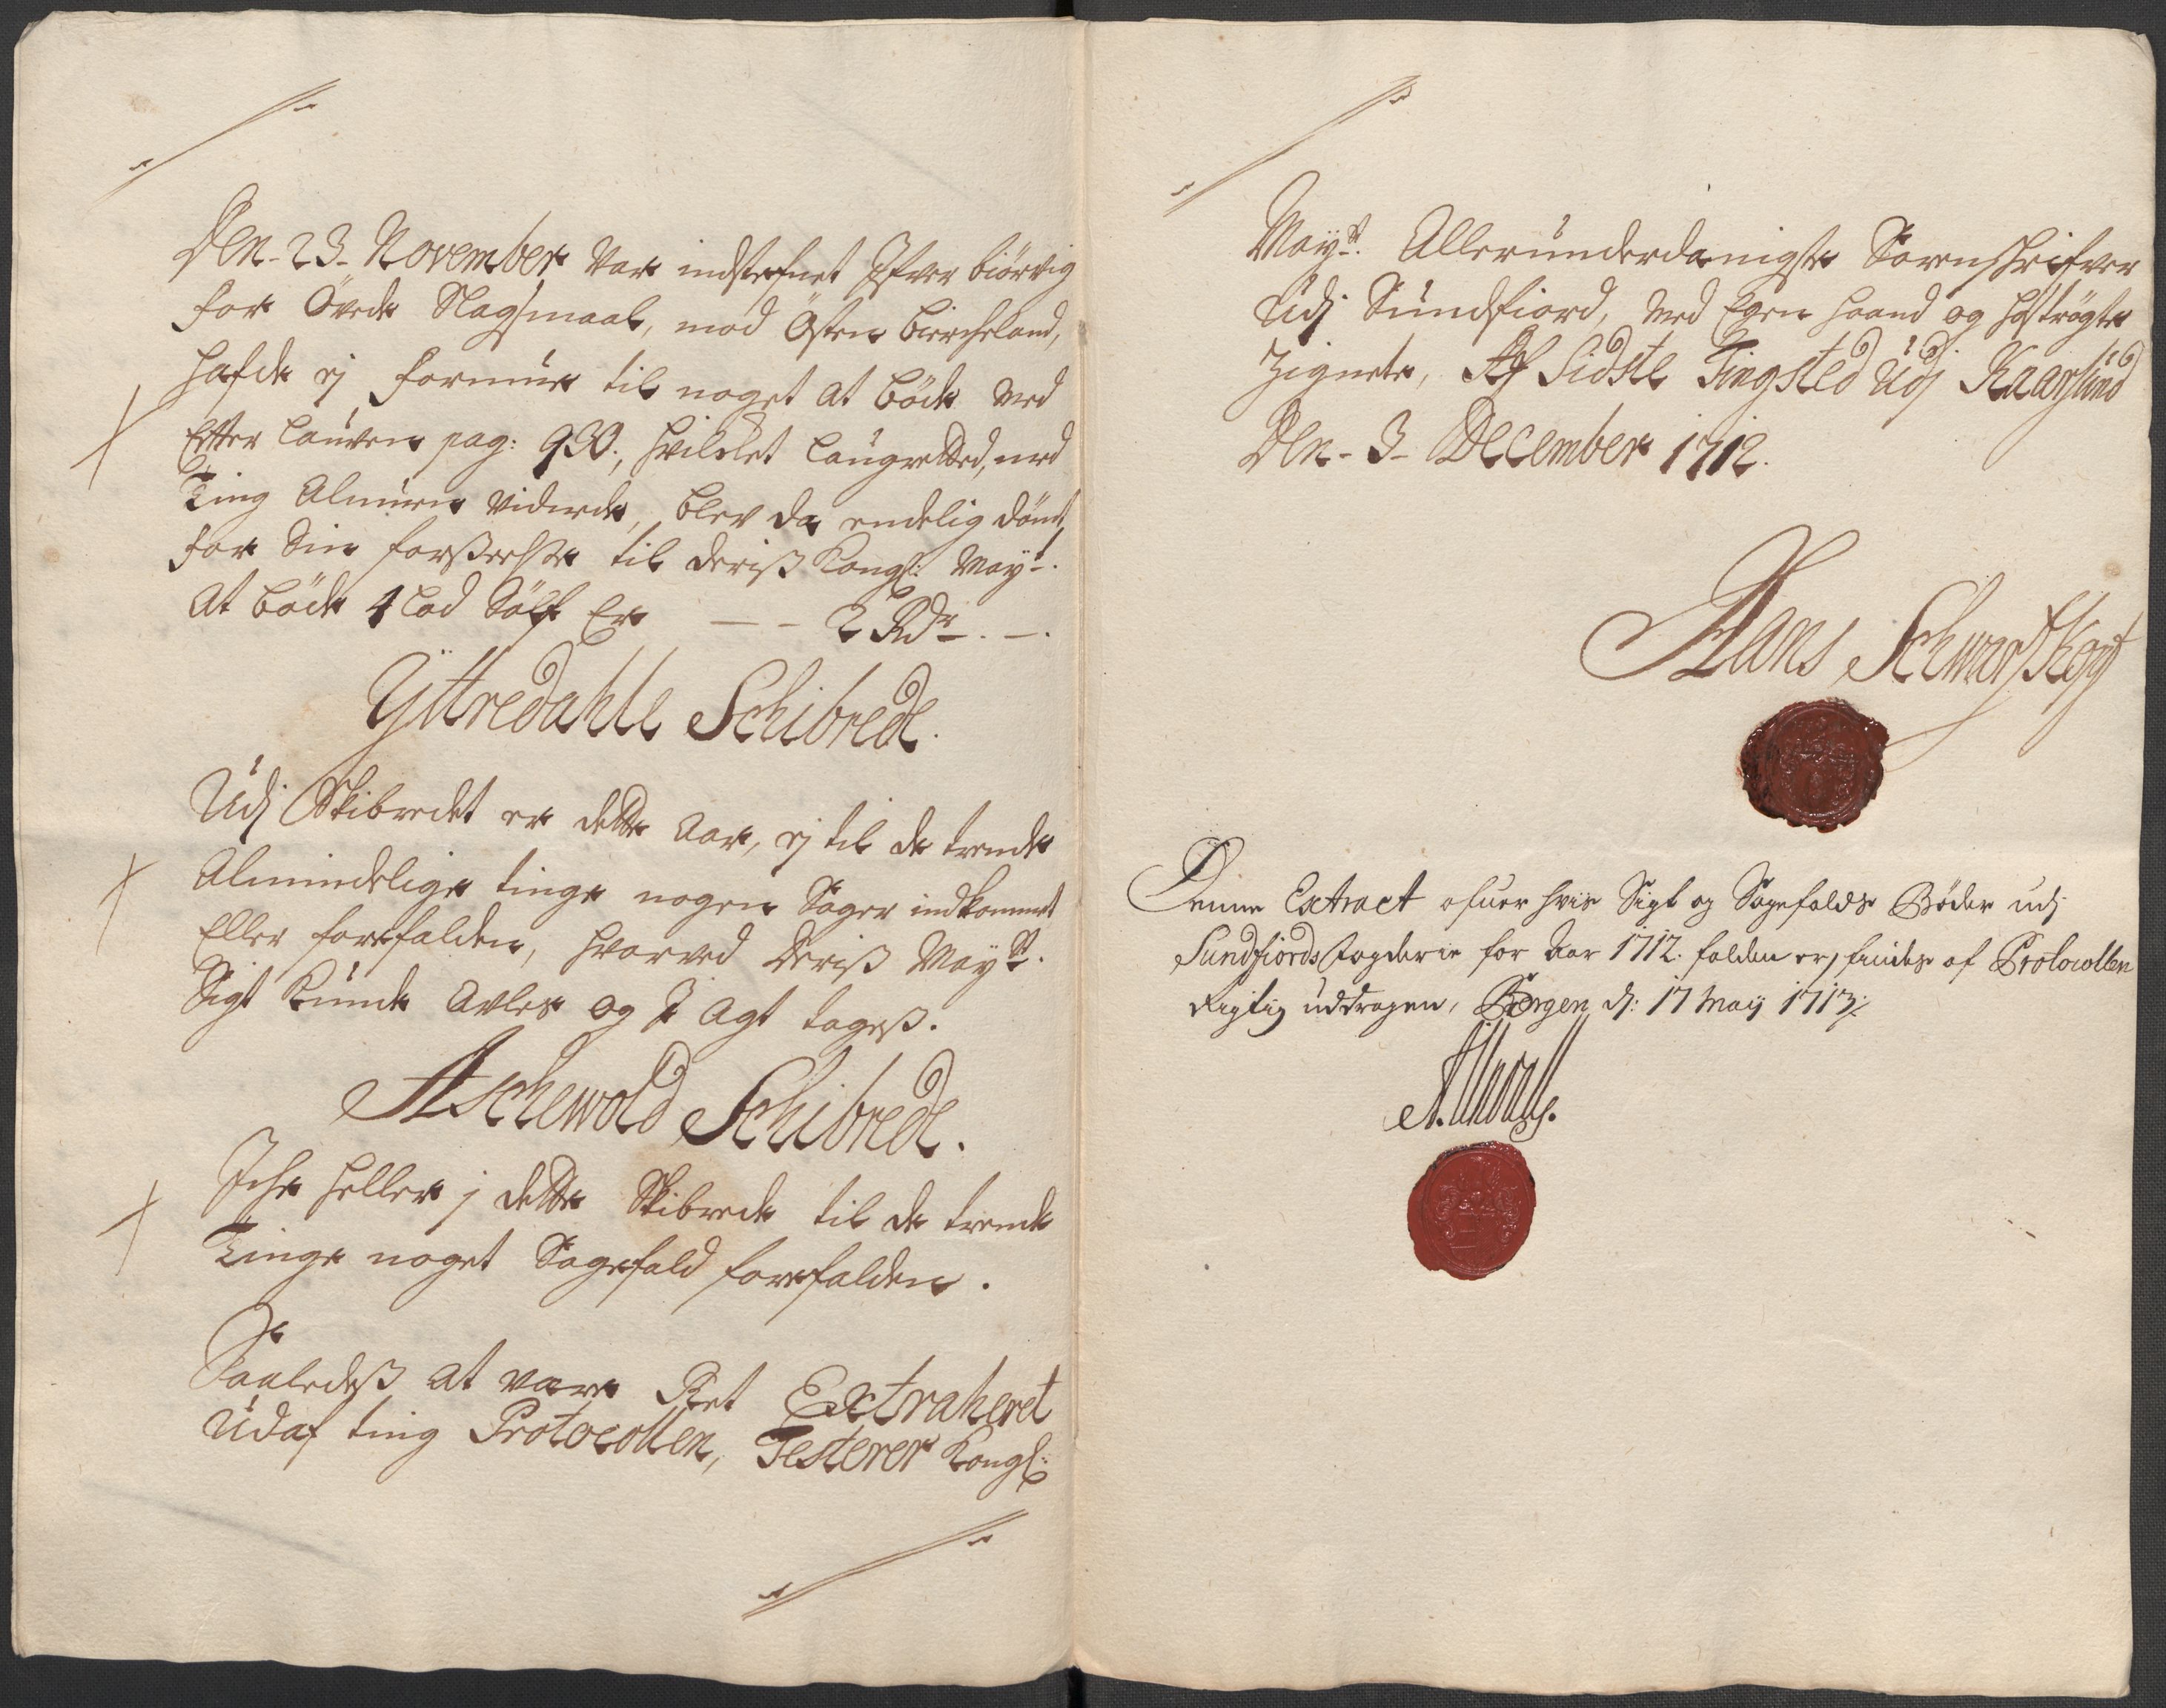 Den 23. November Var indstefnet Jfver biörvig
for Övede Slagsmaal, mod Östen bircheland,
hafde ej formue til noget at böde med
Efter Lauven pag: 930., hvilcket Laugretted, med
Ting Almuen vidnede, blev da endelig dömt
for Sin forseelse til deriß Kongl: Mayt:
at böde 4 Lod Sölf Er — - 2 Rdr. —.
Ÿttredahle Schibrede.
Udj Skibredet er dette Aar, ej til de trende
Almindelige tinge nogen Sager indkommet
Eller forefalden, hvorved Deriß Mayst.
Sigt kunde Avles og J Agt tageß.
Aschewold Schibrede.
Jche heller j dette Skibrede til de trende
Tinge noget Sagefald forefalden.
Saaledeß at være Ret Extraheret
Udaf ting Protocollen, Testerer Kongl:
Mayst. Allerunderdanigste Sorenskrifver
Udj Sundfiord, med Egen haand og hoströgte
Zignete, Af Sidste Tingsted Udj Kaarsund
Den- 3- December 1712.
Hans Schwartzkopf
Denne Extract ofuer hvis Sigt og Sagefalds Bøder udj
Sundfiords fogderie for Aar 1712. falden er, findes af Protocollen
Rigtig uddragen, Bergen dj: 17 Maij 1713.